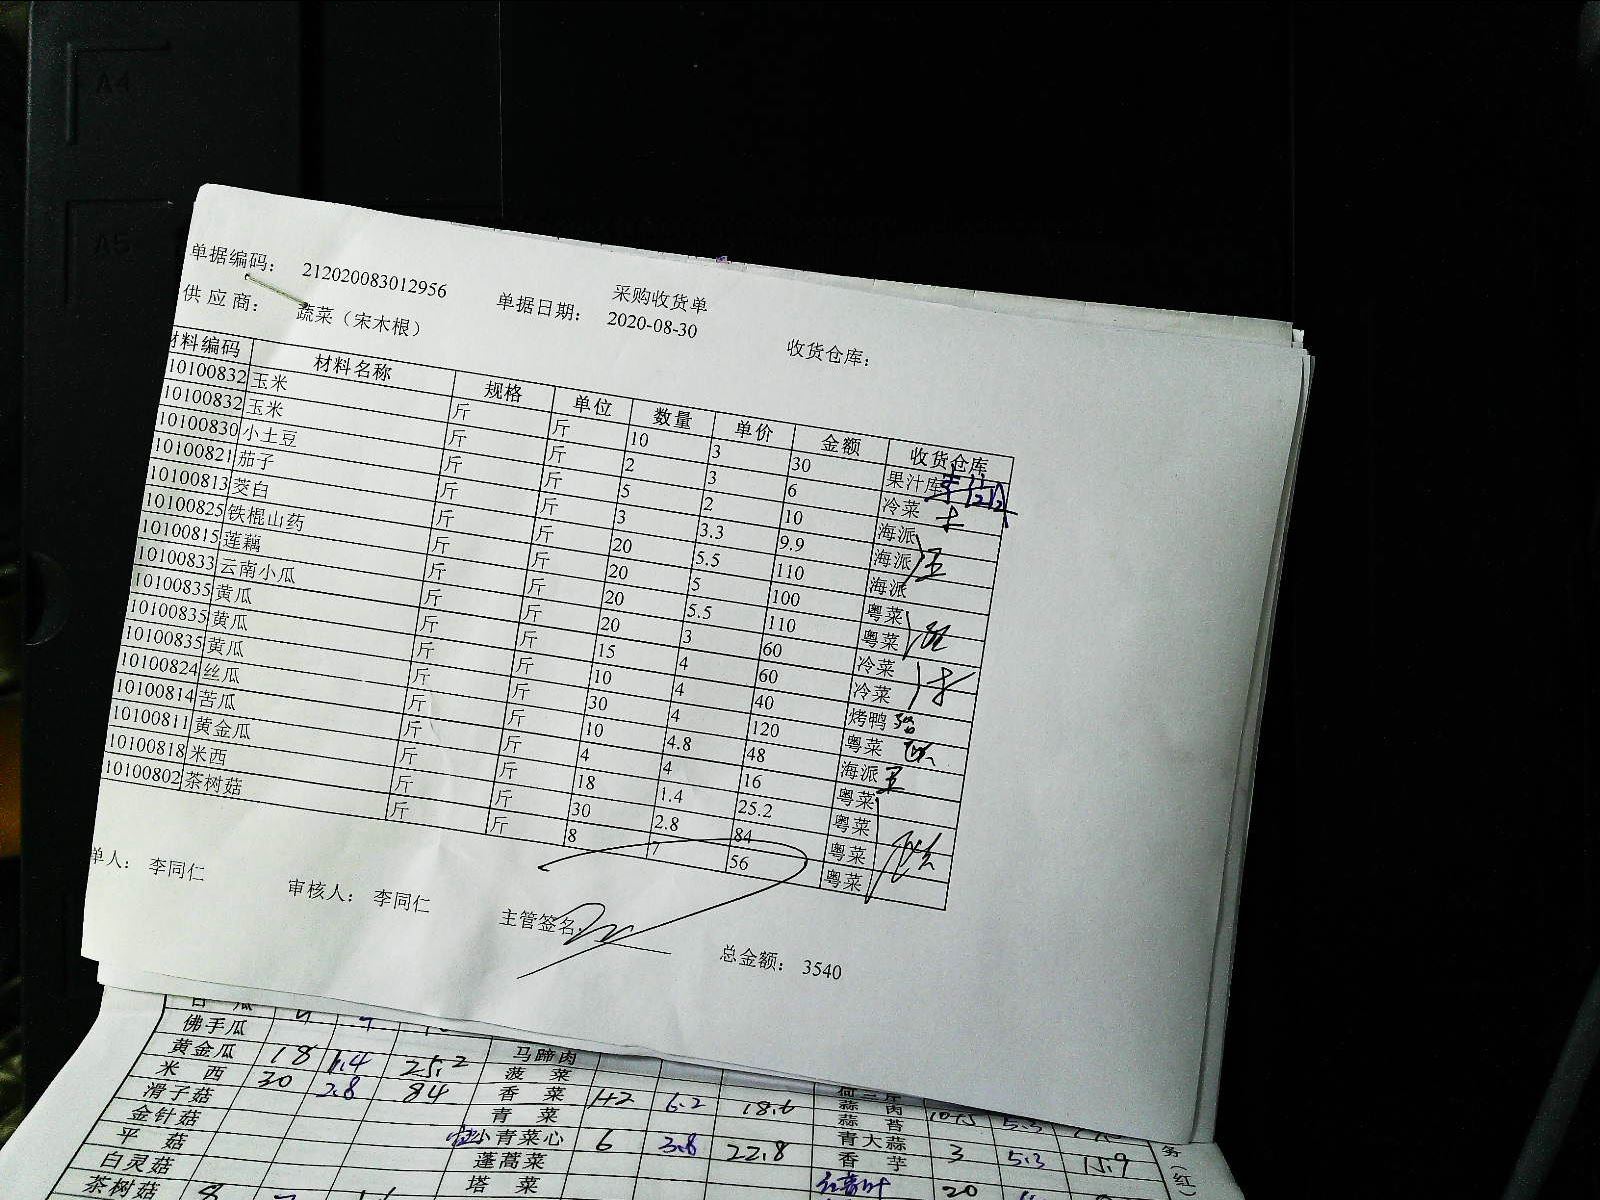 A4
A5
采购收货单
单据编码： 212020083012956 单据日期： 2020-08-30 收货仓库：
供应商： 蔬菜（宋木根）
材料编码 材料名称 规格 单位 数量 单价 金额 收货仓库
10100832 玉米 斤 斤 10 3 30 果汁库
10100832 玉米 斤 斤 2 3 6 冷菜
10100830 小土豆 斤 斤 5 2 10 海派
10100821 茄子 斤 斤 3 3.3 9.9 海派
10100813 茭白 斤 斤 20 5.5 110 海派
10100825 铁棍山药 斤 斤 20 5 100 粤菜
10100815 莲藕 斤 斤 20 5.5 110 粤菜
10100833 云南小瓜 斤 斤 20 3 60 冷菜
10100835 黄瓜 斤 斤 15 4 60 冷菜
10100835 黄瓜 斤 斤 10 4 40 烤鸭
10100835 黄瓜 斤 斤 30 4 120 粤菜
10100824 丝瓜 斤 斤 10 4.8 48 海派
10100814 苦瓜 斤 斤 4 4 16 粤菜
10100811 黄金瓜 斤 斤 18 1.4 25.2 粤菜
10100818 米西 斤 斤 30 2.8 84 粤菜
10100802 茶树菇 斤 斤 8 7 56 粤菜
单人： 李同仁 审核人： 李同仁 主管签名： 总金额： 3540
佛手瓜 马蹄肉
黄金瓜 18 1.4 25.2 菠菜
米西 30 2.8 84 香菜 6.2 18.6 蒜肉
滑子菇 青菜 蒜苔 5.3
金针菇 小青菜心 6 3.8 22.8 青大蒜
平菇 蓬蒿菜 香芋 3 5.3
白灵菇 塔菜 20
茶树菇 8